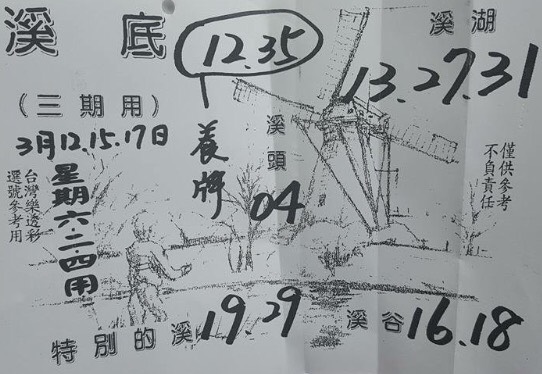 溪底
12.35
養牌
溪湖
13.27.31
(三期用)
3月12.15.17日
星期六.二.四用
台灣樂透彩
選號參考用
溪頭
04
僅供參考
不負責任
特別的溪 19.29
溪谷 16.18